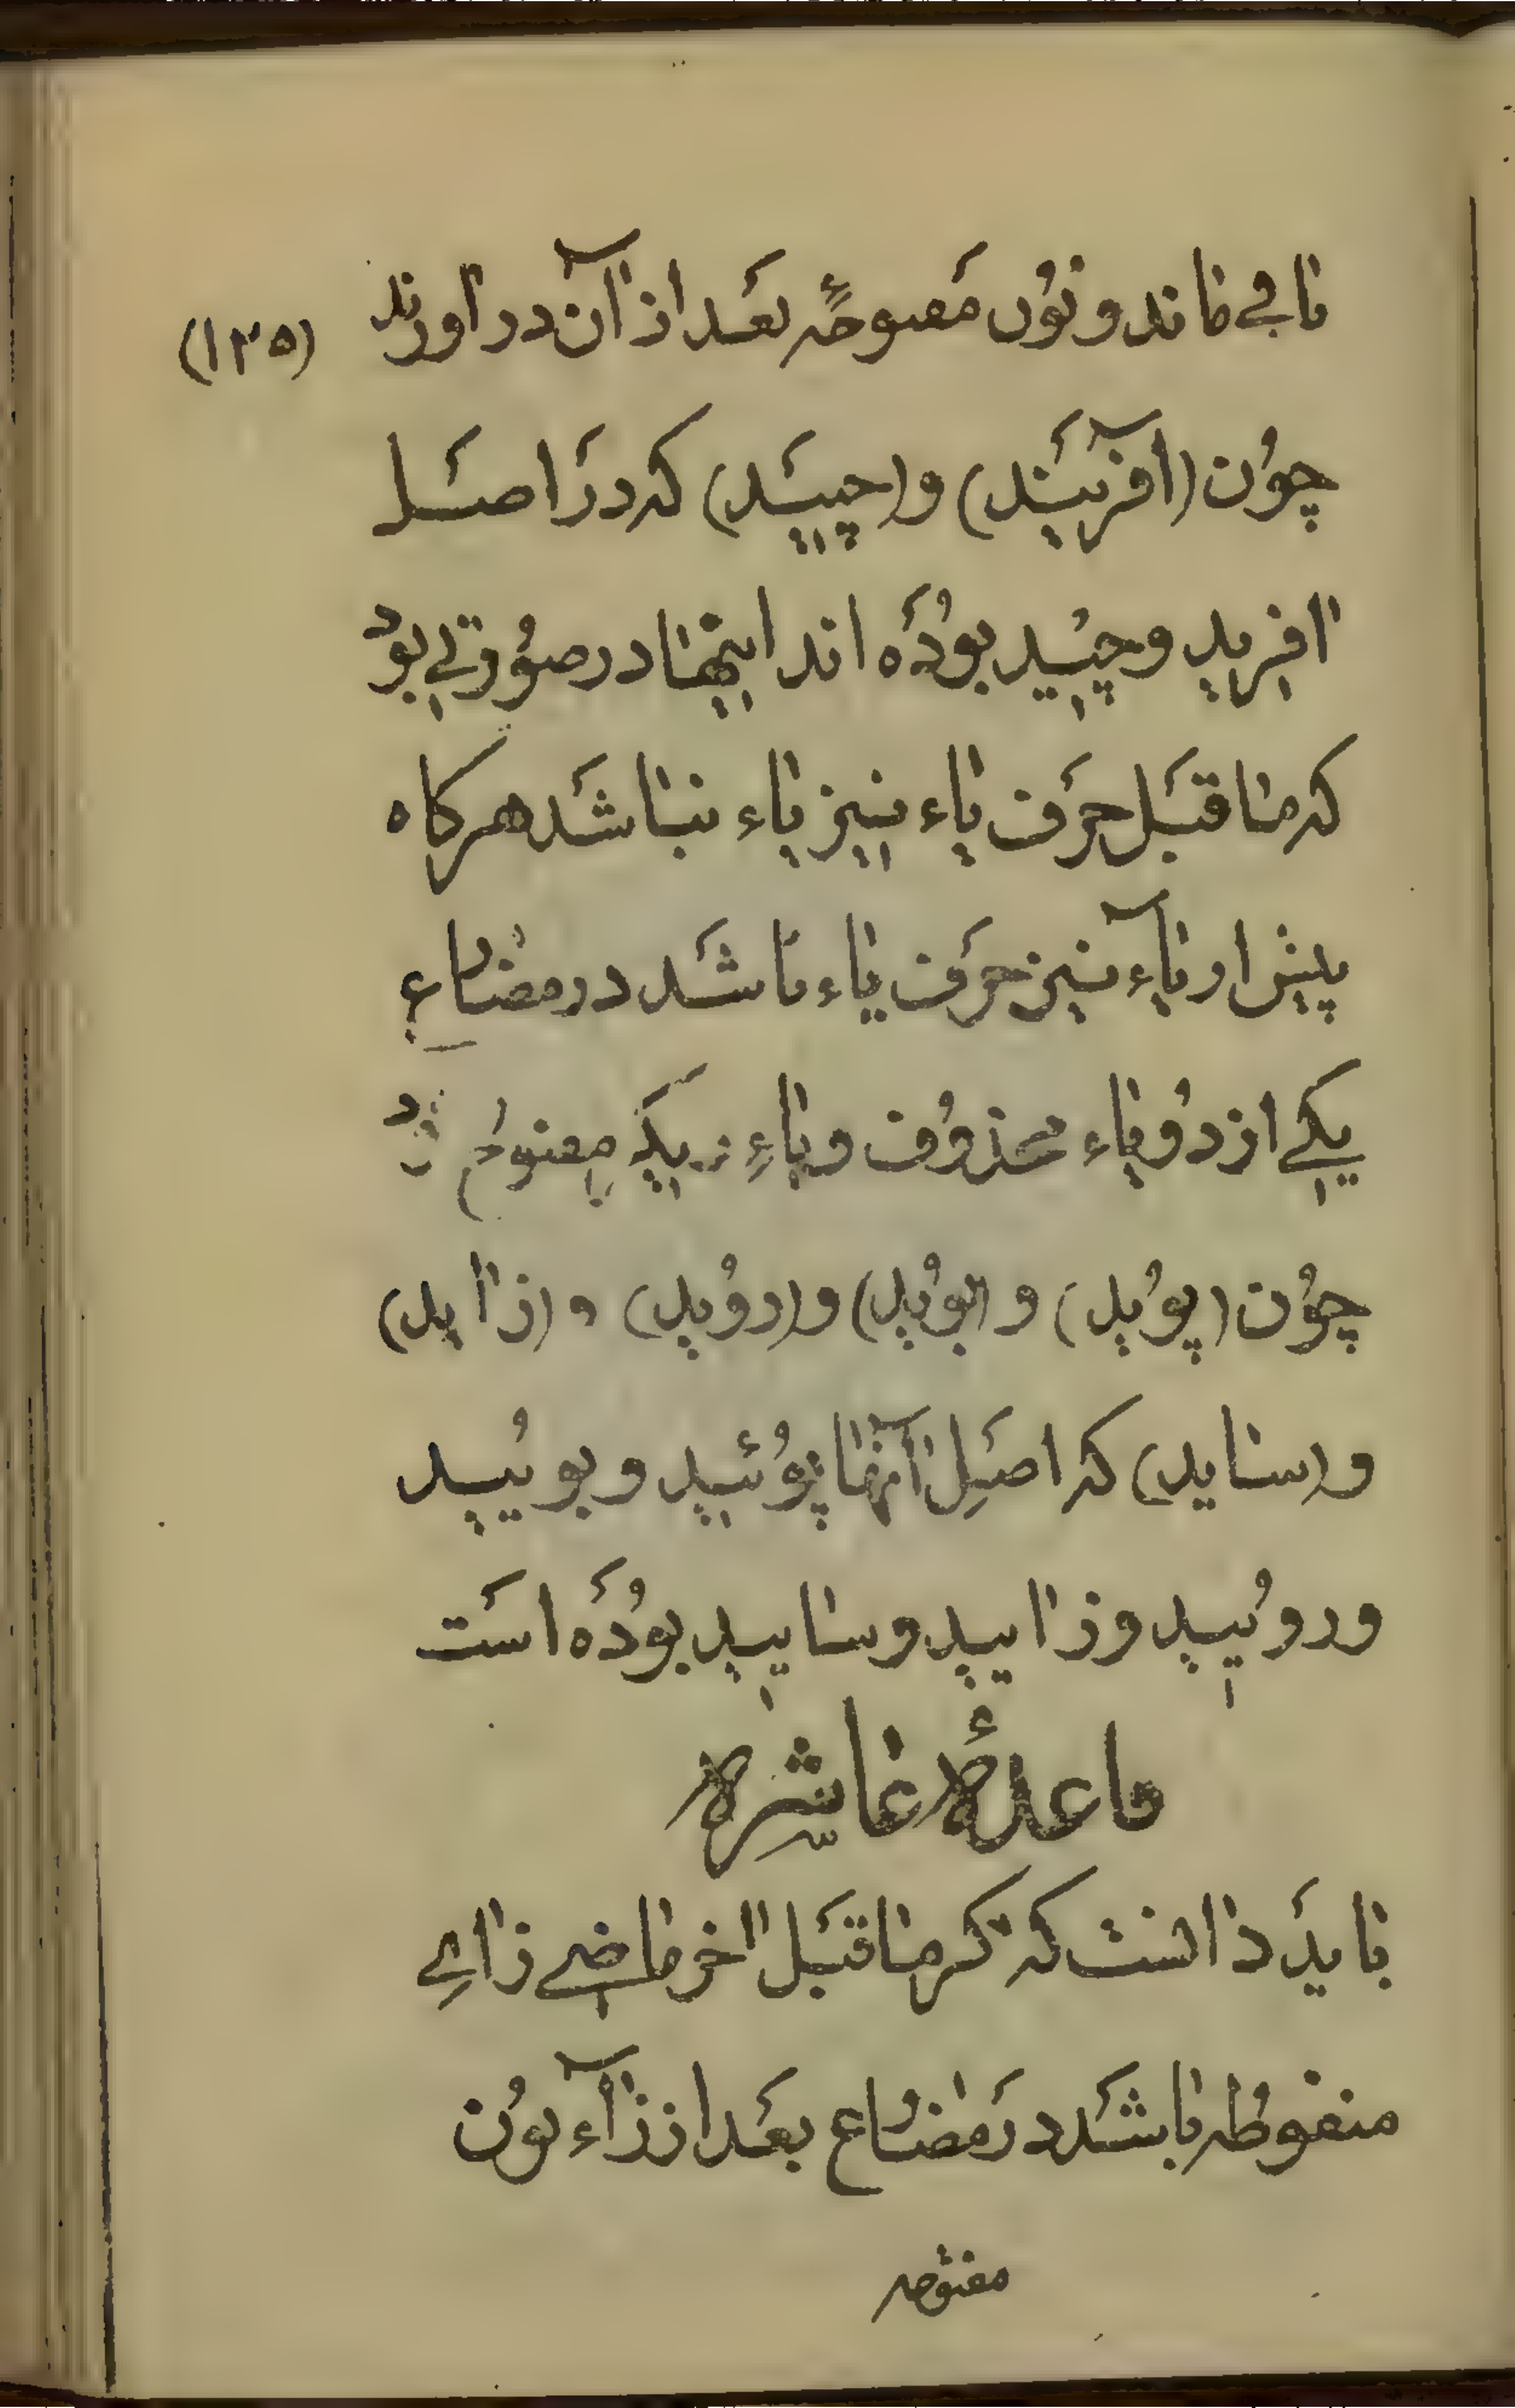 باقی ماند و نُون مَفتوحۀ بَعَد از آن در اورند (۱۳۵)
چوُن (آفَریَنَد) و (چییَند) که دَر اصَل
افرید و چیُید بوُدَه اند اینها در صوُرتی بوَد
که ما قبَل حَرَف یاء نیز یاء نباشَد هر کاه
پیش از یآء نیز حَرَف یاء باشَد در مضُارعِ
یکی از دوُ یاء محذوُف و یاءِ دیکَر مفتوح شوَد
چوُن (پوُید) و (بوُید) و (روُید) و (زاید)
و (ساید) که اصَلِ آنها پوُئید و بوییُد
و روُیید و زایید و سایید بوُدَه اسَت
قاعدۀ عاشره
بایَد دانست که اکر ما قبَل اخر ماضی زایِ
منقوطه باشَد دَر مَضُارع بعَد از زآء نوُن
مفتوُحه